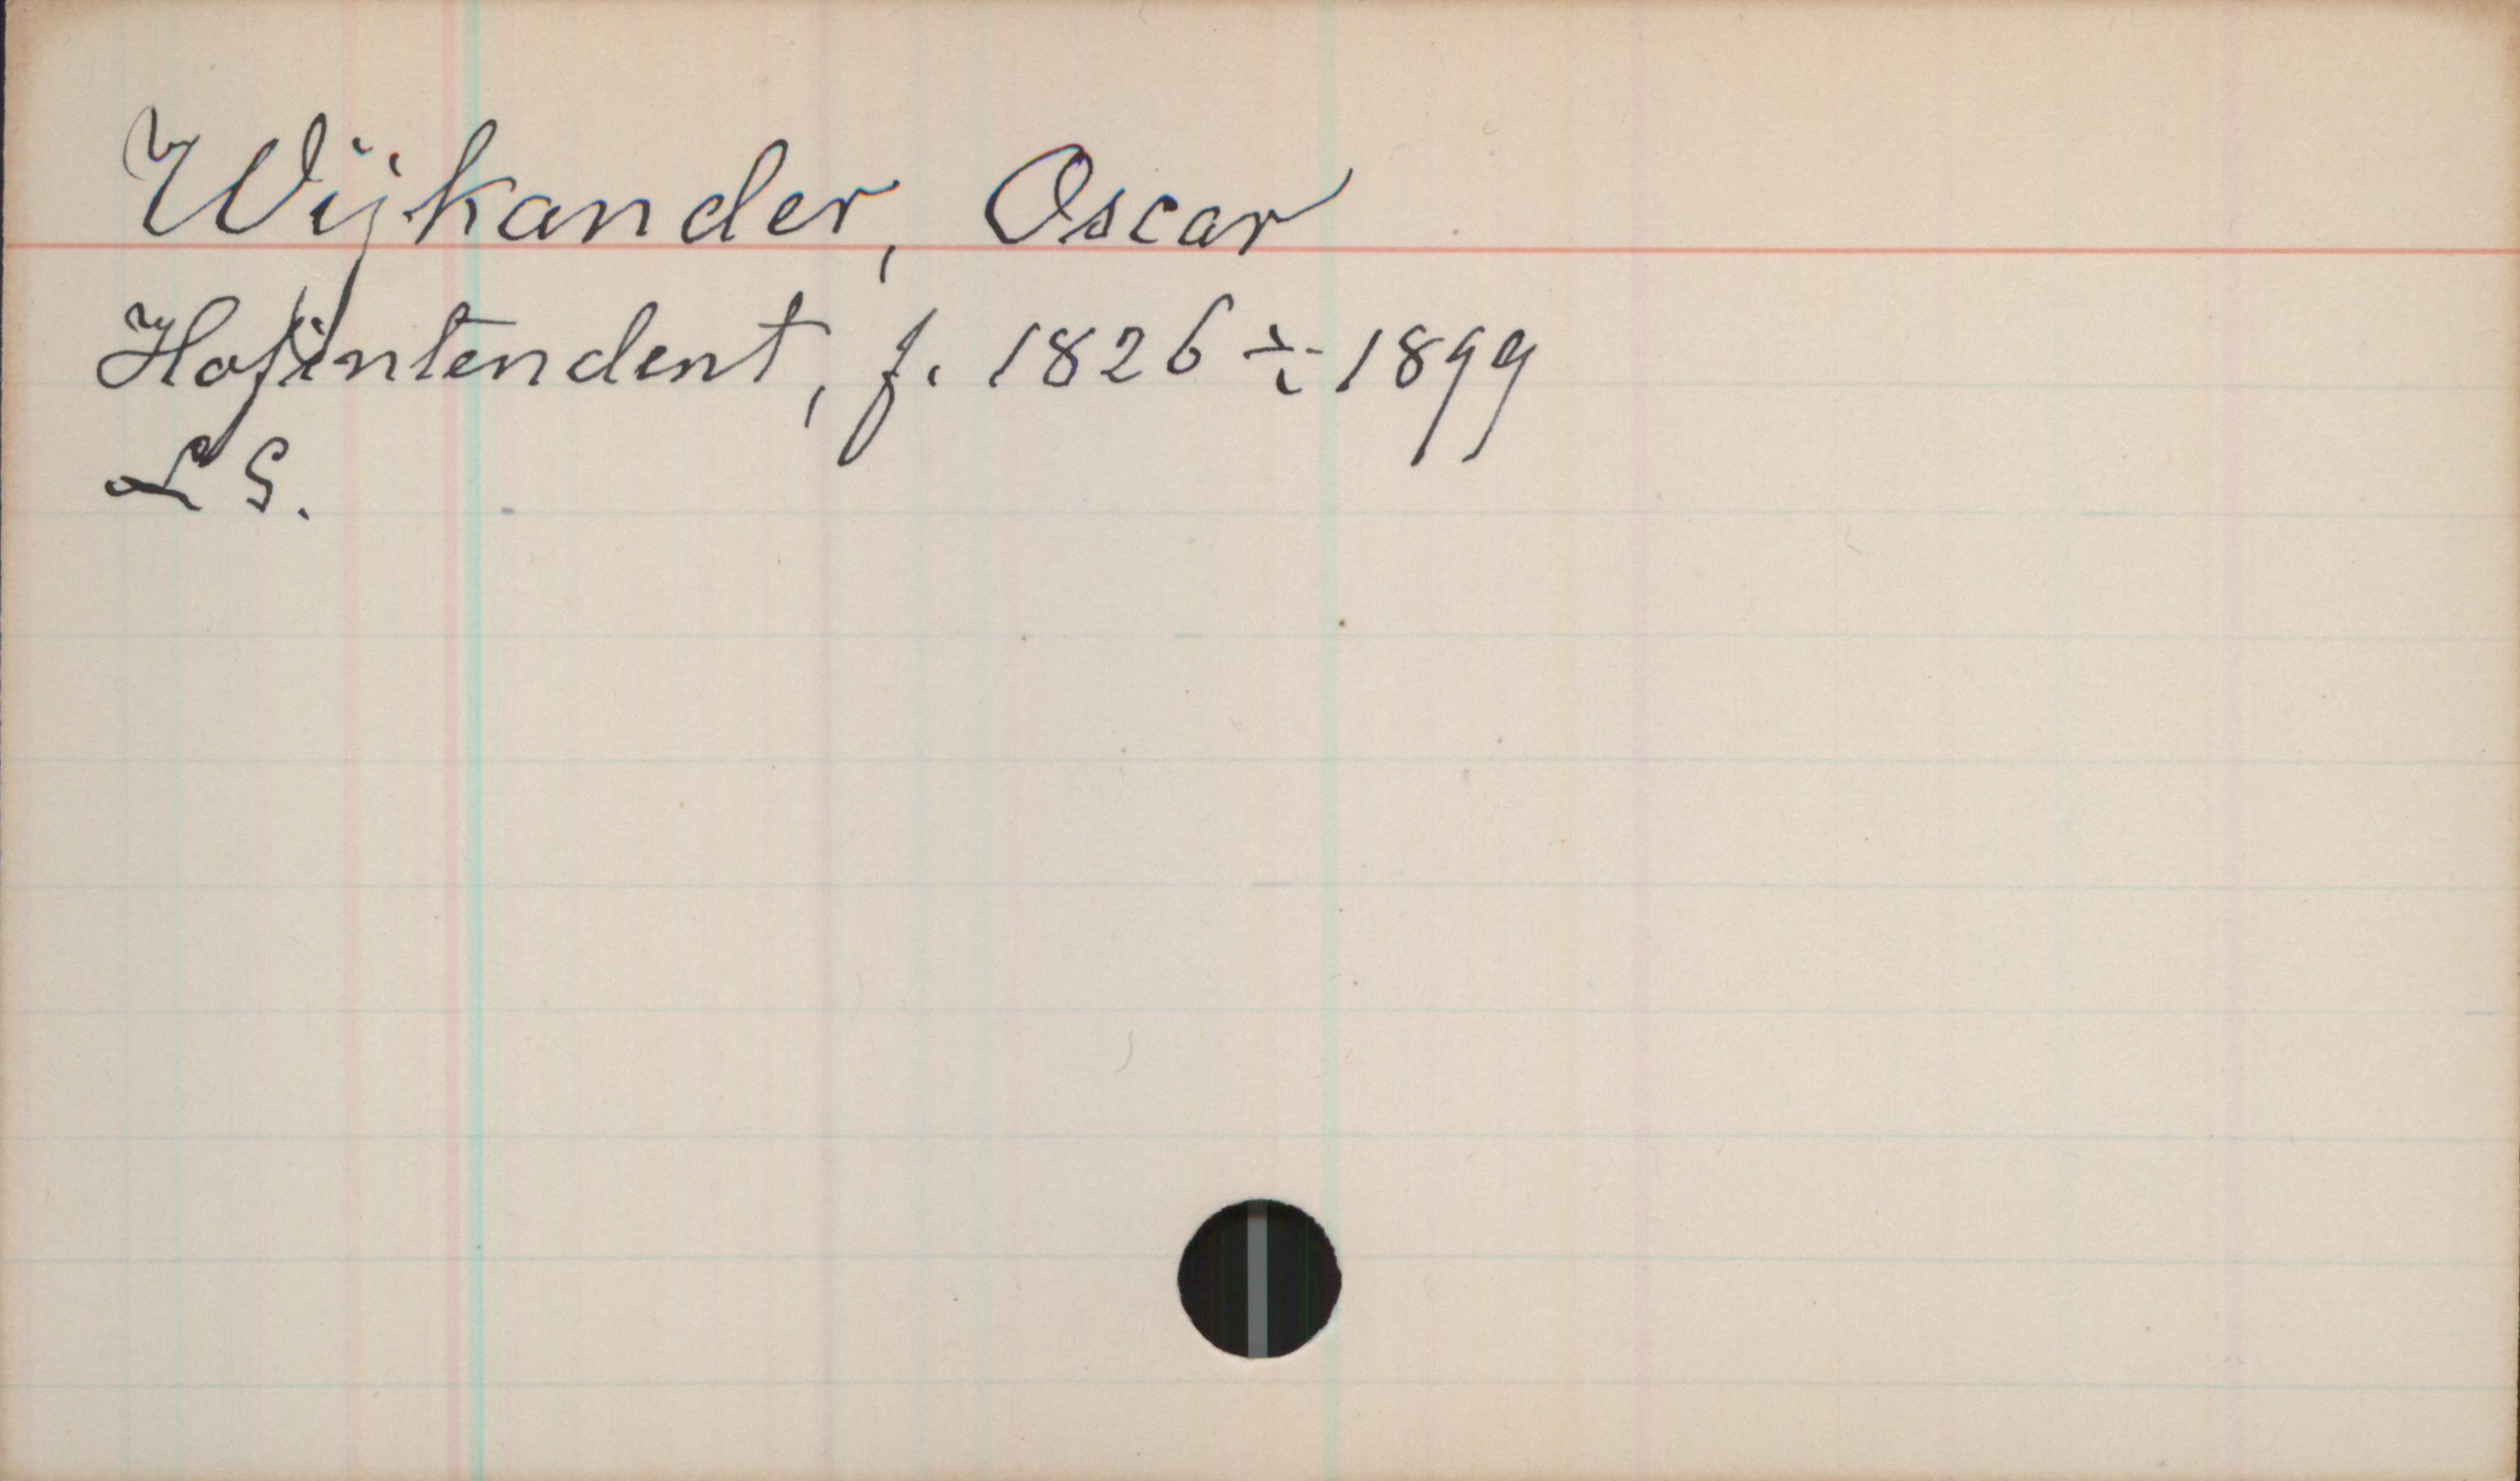 Wijkander, Oscar
Hofintendent, f. 1826 ÷ 1899
L S.